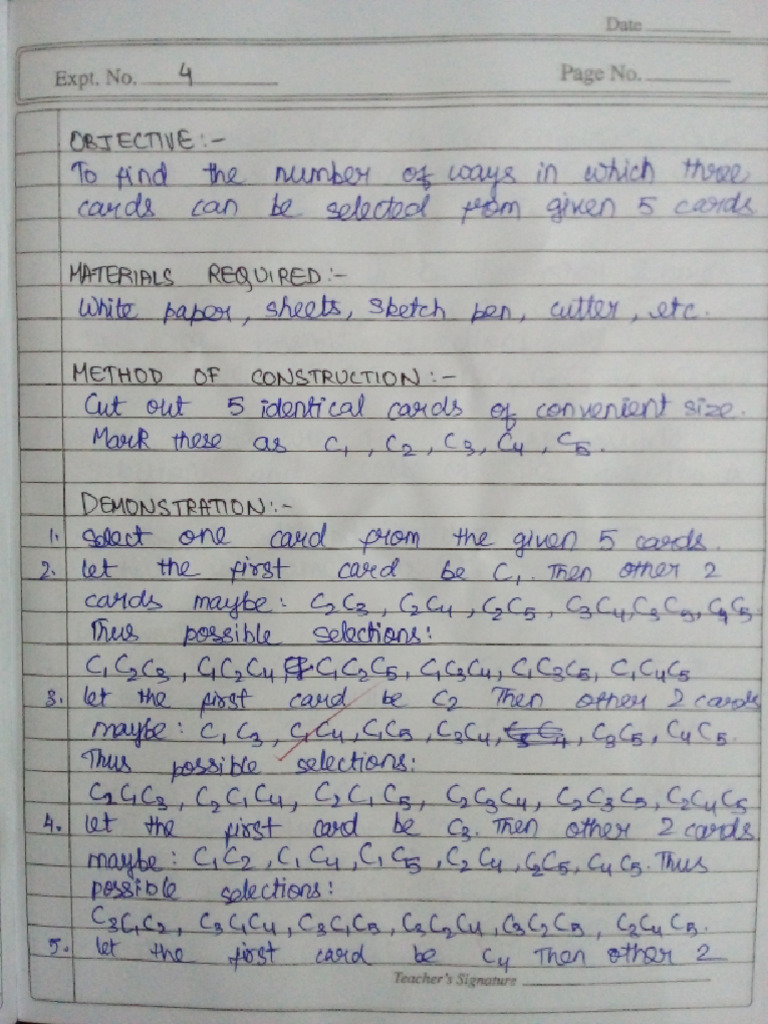 Date
Expt. No. 4 Page No.
OBJECTIVE:-
To find the number of ways in which three
cards can be selected from given 5 cards
MATERIALS REQUIRED:-
White paper, sheets, sketch pen, cutter, etc.
METHOD OF CONSTRUCTION:-
Cut out 5 identical cards of convenient size.
Mark these as C₁, C₂, C₃, C₄, C₅.
DEMONSTRATION:-
1. Select one card from the given 5 cards.
2. let the first card be C₁. Then other 2
cards maybe: C₂C₃, C₂C₄, C₂C₅, C₃C₄, C₃C₅, C₄C₅.
Thus possible selections:
C₁C₂C₃, C₁C₂C₄ C₁C₂C₅, C₁C₃C₄, C₁C₃C₅, C₁C₄C₅
3. let the first card be C₂ Then other 2 cards
maybe: C₁C₃, C₁C₄, C₁C₅, C₃C₄, C₃C₅, C₄C₅.
Thus possible selections:
C₂C₁C₃, C₂C₁C₄, C₂C₁C₅, C₂C₃C₄, C₂C₃C₅, C₂C₄C₅
4. let the first card be C₃. Then other 2 cards
maybe: C₁C₂, C₁C₄, C₁C₅, C₂C₄, C₂C₅, C₄C₅. Thus
possible selections:
C₃C₁C₂, C₃C₁C₄, C₃C₁C₅, C₃C₂C₄, C₃C₂C₅, C₂C₄C₅.
5. let the first card be C₄ Then other 2
Teacher's Signature